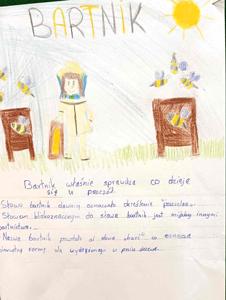 BARTNIK
Bartnik właśnie sprawdza co dzieje
się u pszczół.
Słowo bartnik dawniej oznaczało określenie "pszczelarz".
Słowem bliskoznacznym do słowa bartnik jest między innymi
Nazwa bartnik powstała od słowa "barć" co oznacza
w pniu drzewa.